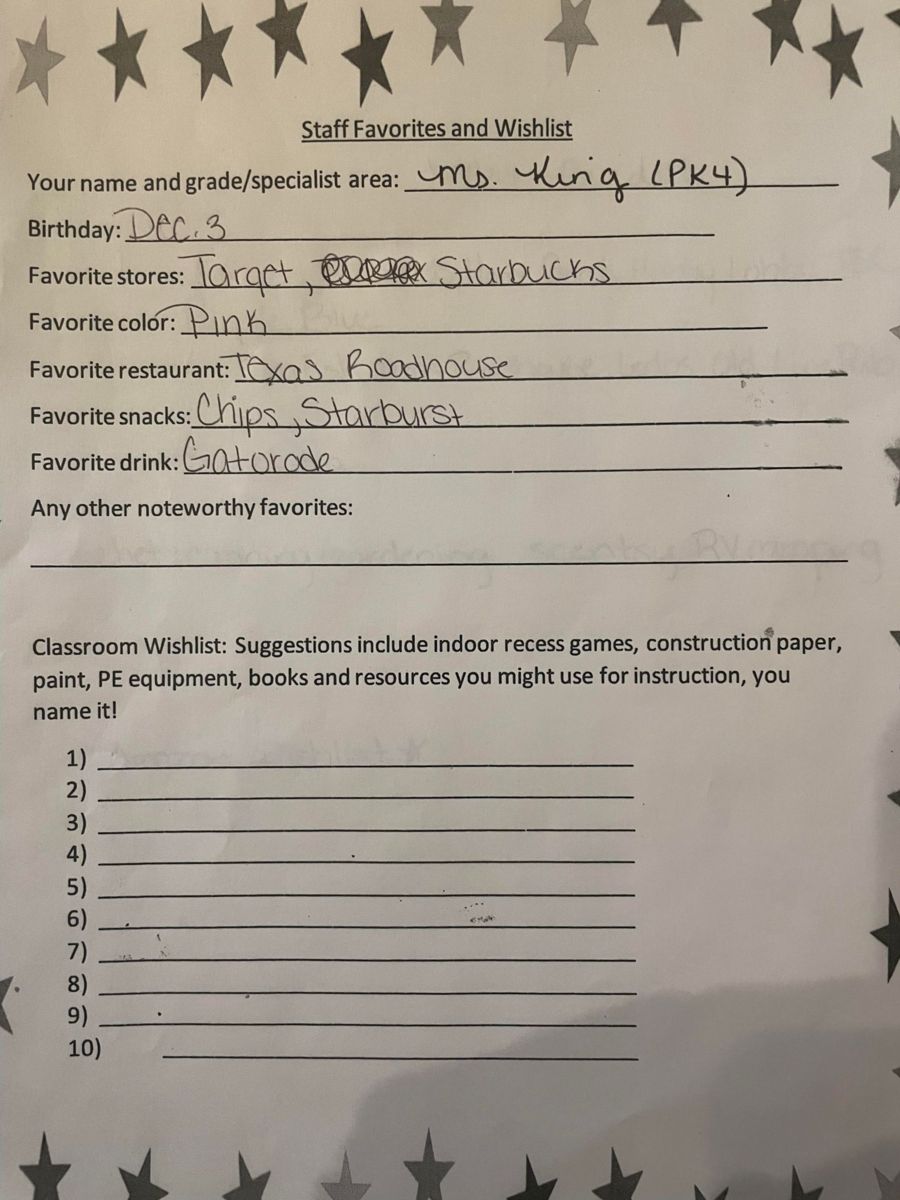 Staff Favorites and Wishlist
Your name and grade/specialist area: Ms. King (PK4)
Birthday: Dec. 3
Favorite stores: Target, Starbucks
Favorite color: Pink
Favorite restaurant: Texas Roadhouse
Favorite snacks: Chips, Starburst
Favorite drink: Gatorade
Any other noteworthy favorites:
Classroom Wishlist: Suggestions include indoor recess games, construction paper,
paint, PE equipment, books and resources you might use for instruction, you
name it!
1)
2)
3)
4)
5)
6)
7)
8)
9)
10)